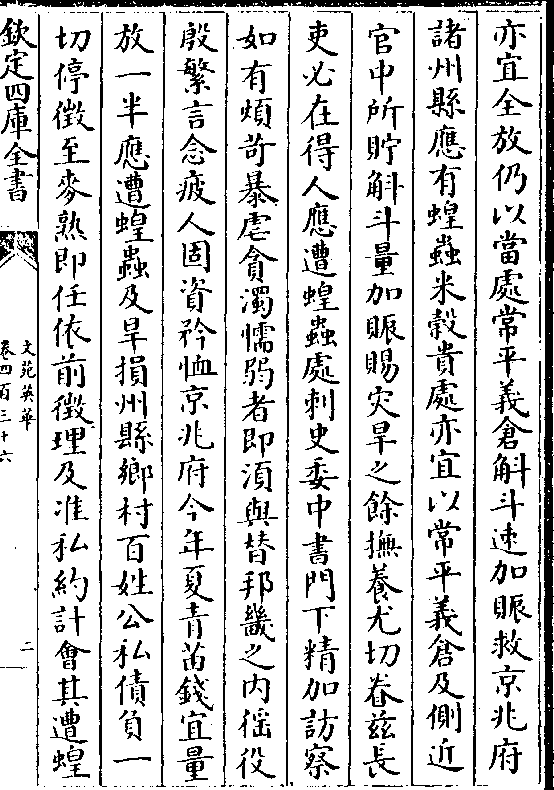 亦宜全放仍以當處常平義倉斛斗速加賑救京兆府
諸州縣應有蝗蟲米穀貴處亦宜以常平義倉及側近
官中所貯斛斗量加賑賜灾旱之餘撫養尤切眷兹長
吏必在得人應遭蝗蟲處刺史委中書門下精加訪察
如有煩苛暴虐貪濁懦弱者即湏與替邦畿之内徭役
殷繁言念疲人固資矜恤京兆府今年夏青苗錢宜量
放一半應遭蝗蟲及旱損州縣鄉村百姓公私債負一
切停徴至麥熟即任依前徴理及准私約計會其遭蝗
欽定四庫全書
文苑英華
卷四百三十六
二